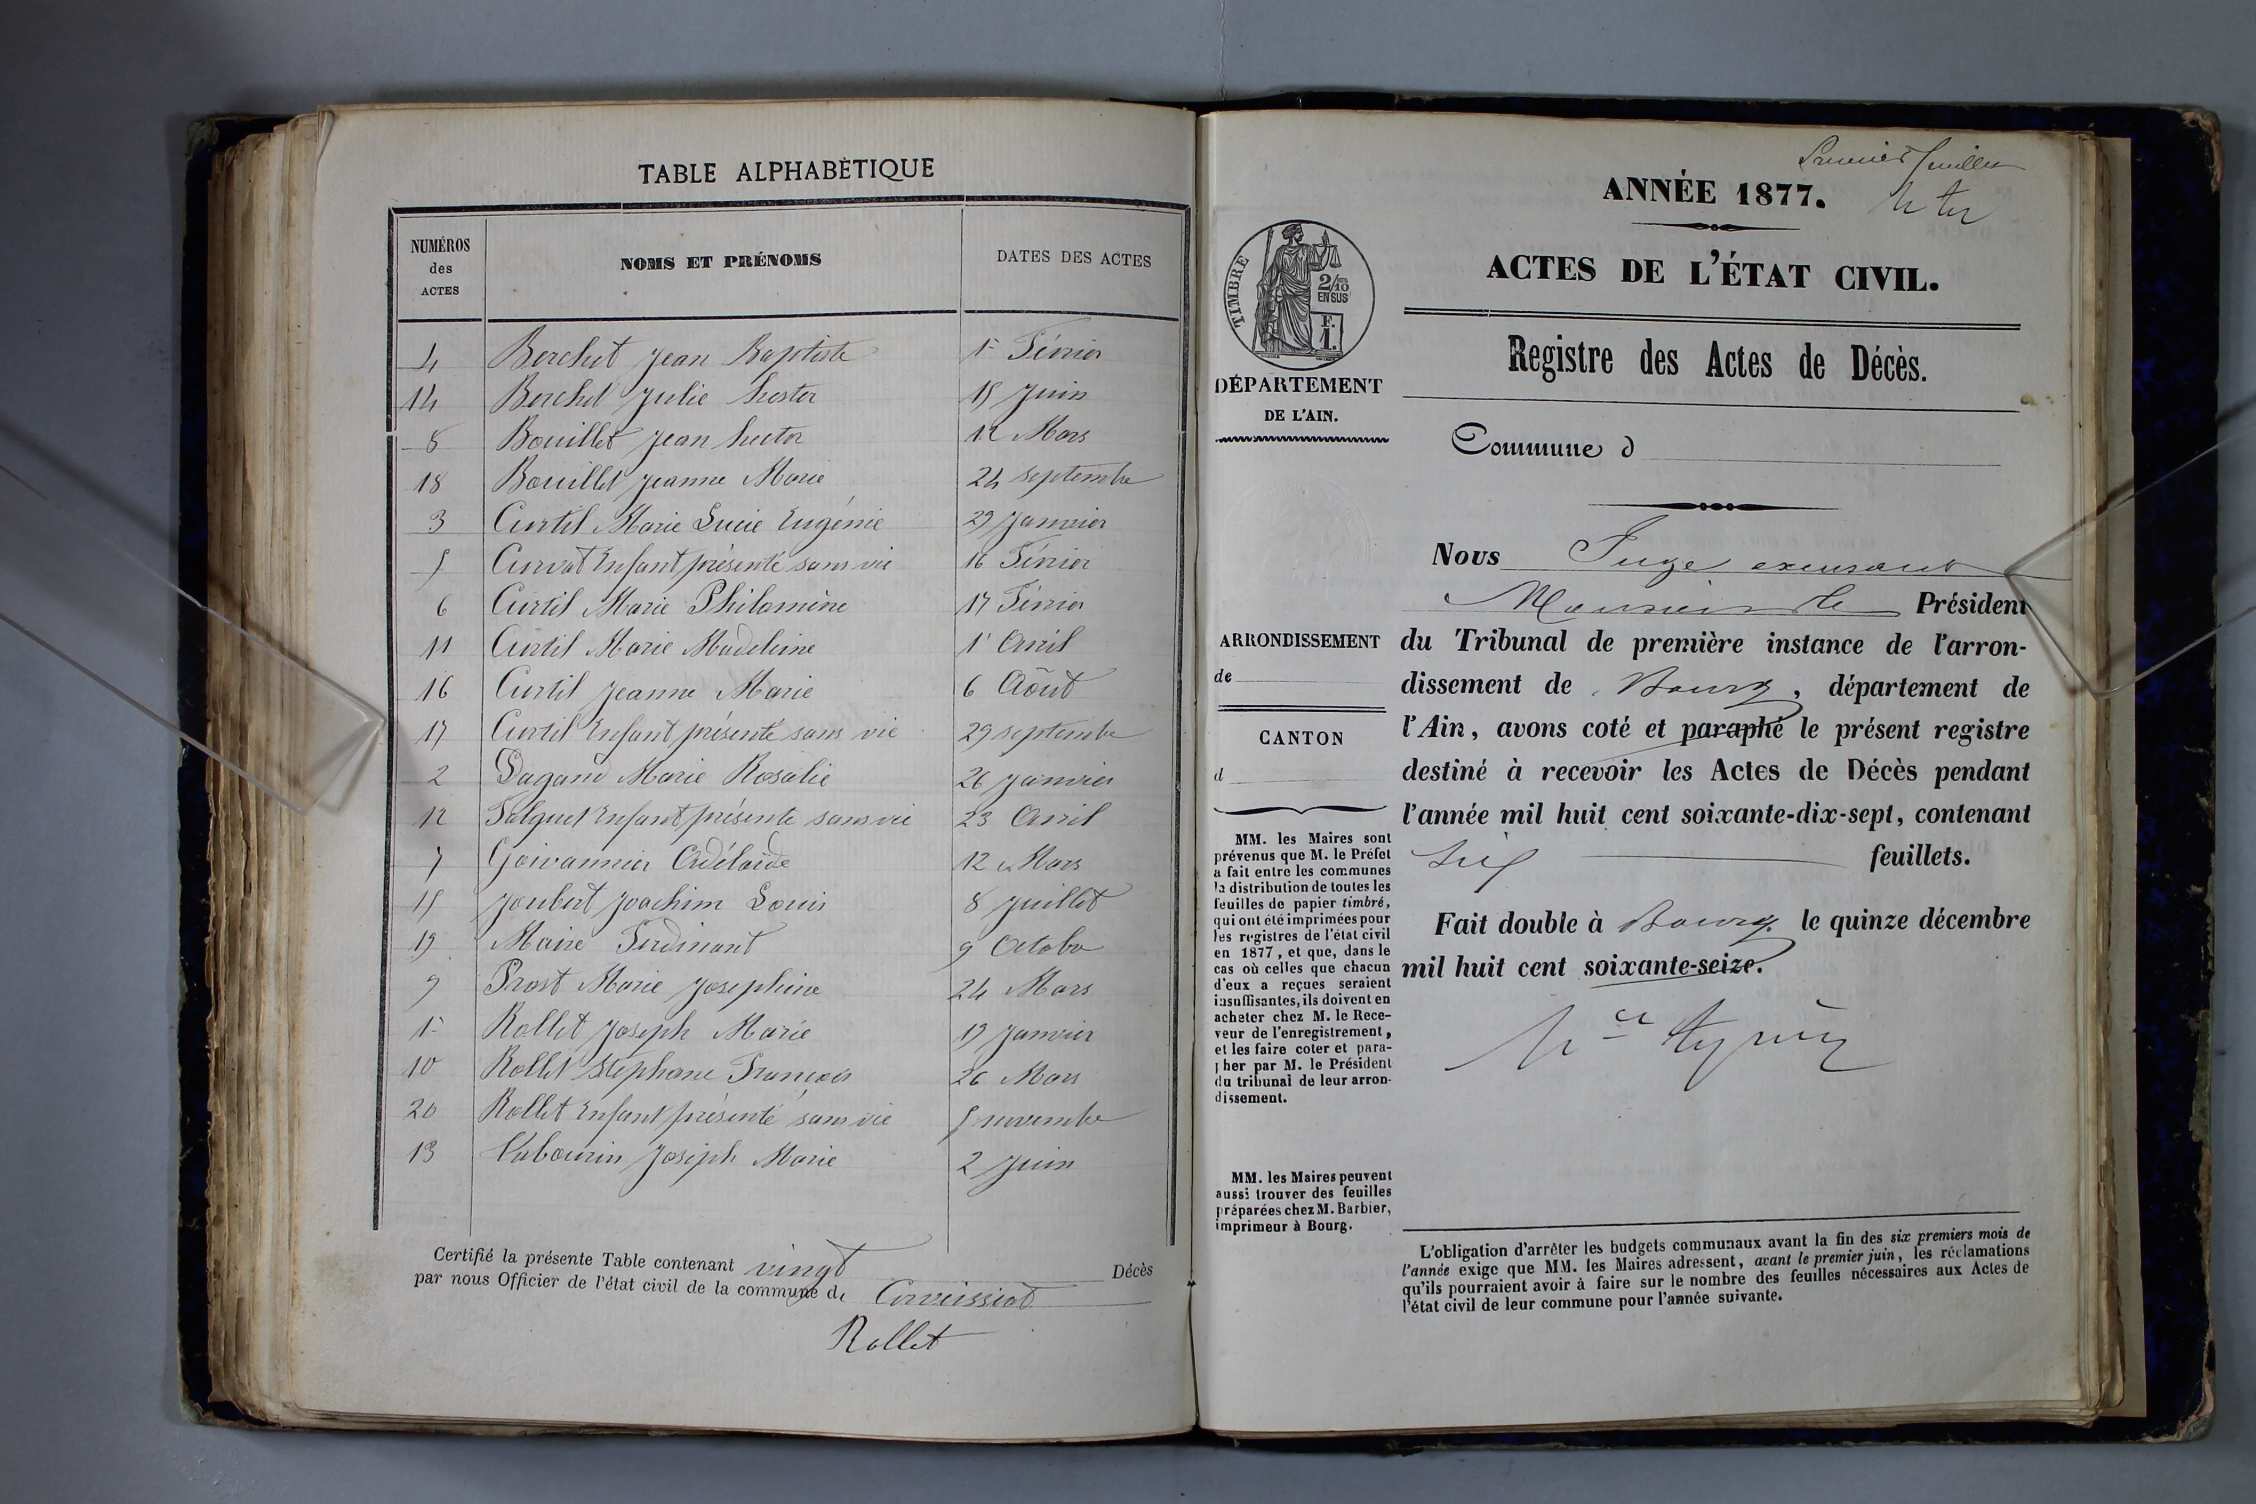 TABLE ALPHABÉTIQUE
NUMÉROS des ACTES
NOMS ET PRÉNOMS
DATES DES ACTES
4 Berchet Jean Baptiste 1er Février
14 Berchet Julie Nestor 15 Juin
8 Bouillet Jean Nestor 12 Mars
18 Bouillet Jeanne Marie 24 septembre
3 Curtil Marie Lucie Eugénie 29 Janvier
5 Curvat Enfant présenté sans vie 16 Février
6 Curtil Marie Philomène 17 Février
11 Curtil Marie Madeleine 1er Avril
16 Curtil Jeanne Marie 6 Août
17 Curtil Enfant présenté sans vie 29 septembre
2 Dagand Marie Rosalie 26 Janvier
12 Falquet Enfant présenté sans vie 23 Avril
7 Goivannier Adélaïde 12 Mars
15 Joubert Joachim Louis 8 Juillet
19 Maire Ferdinant 9 Octobre
9 Prost Marie Josephine 24 Mars
1er Rollet Joseph Marie 19 Janvier
10 Rollet Stéphane François 26 Mars
20 Rollet Enfant présenté sans vie 5 novembre
13 Vabourin Joseph Marie 2 Juin
Certifié la présente Table contenant vingt Décès
par nous Officier de l'état civil de la commune de Corveissiat
Rollet
Premier feuillet
ANNÉE 1877.
ACTES DE L'ÉTAT CIVIL.
Registre des Actes de Décès.
Commune d
TIMBRE
2/10 EN SUS
F. 1.
DÉPARTEMENT
DE L'AIN.
ARRONDISSEMENT
de
CANTON
d
MM. les Maires sont
prévenus que M. le Préfet
a fait entre les communes
la distribution de toutes les
feuilles de papier timbré,
qui ont été imprimées pour
les registres de l'état civil
en 1877, et que, dans le
cas où celles que chacun
d'eux a reçues seraient
insuffisantes, ils doivent en
acheter chez M. le Rece-
veur de l'enregistrement,
et les faire coter et para-
pher par M. le Président
du tribunal de leur arron-
dissement.
MM. les Maires peuvent
aussi trouver des feuilles
préparées chez M. Barbier,
imprimeur à Bourg.
Nous Juge
Monsieur le Président
du Tribunal de première instance de l'arron-
dissement de Bourg, département de
l'Ain, avons coté et paraphé le présent registre
destiné à recevoir les Actes de Décès pendant
l'année mil huit cent soixante-dix-sept, contenant
six feuillets.
Fait double à Bourg le quinze décembre
mil huit cent soixante-seize.
L'obligation d'arrêter les budgets communaux avant la fin des six premiers mois de
l'année exige que MM. les Maires adressent, avant le premier juin, les réclamations
qu'ils pourraient avoir à faire sur le nombre des feuilles nécessaires aux Actes de
l'état civil de leur commune pour l'année suivante.